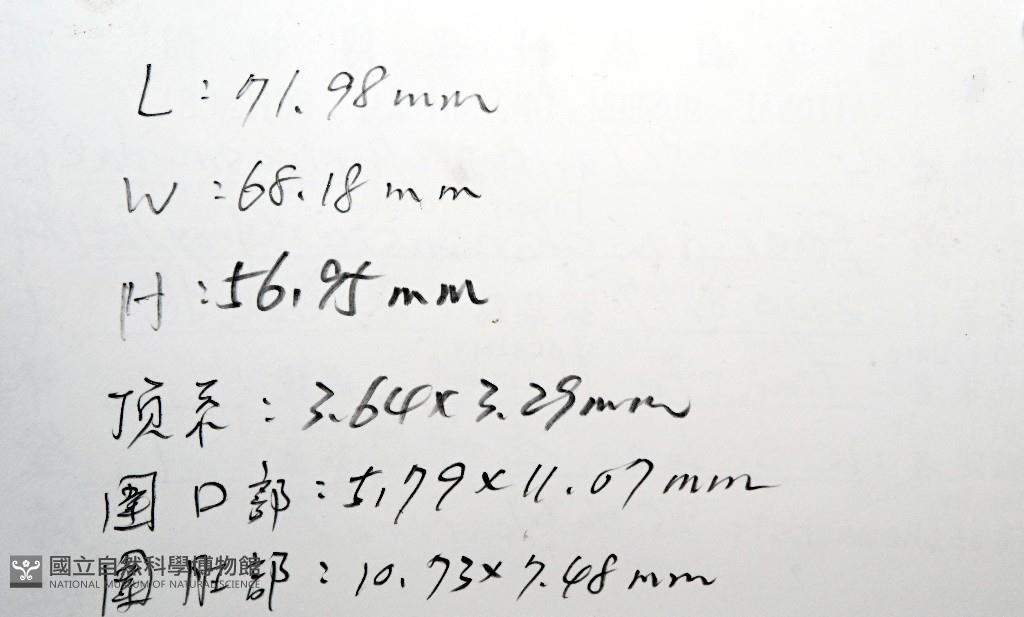 L:71.98mm
W:68.18mm
H:56.95mm
頂系:3.64x3.29mm
圍口部:5.79x11.07mm
圍肛部:10.73x7.48mm
國立自然科學博物館
NATIONAL MUSEUM OF NATURAL SCIENCE